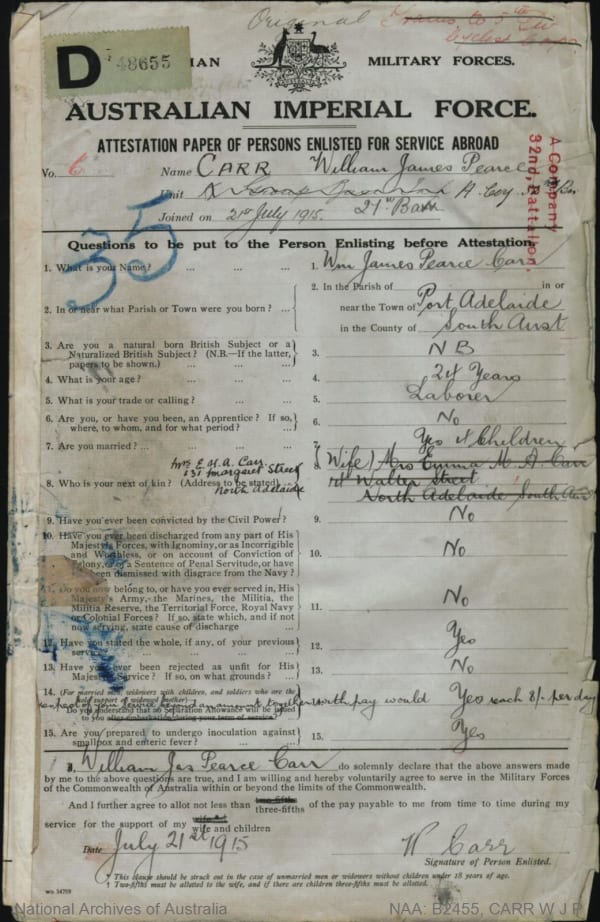 Original
Trans. to 5th
Cyclist Corps
D 48655
MILITARY FORCES.
AUSTRALIAN IMPERIAL FORCE.
ATTESTATION PAPER OF PERSONS ENLISTED FOR SERVICE ABROAD
No. Name CARR William James Pearce
Unit A. Coy
A Company
32nd. Battalion.
Joined on 21st July 1915. 27th Batt
35
Questions to be put to the Person Enlisting before Attestation.
1. What is your Name? ... ... ... 1. Wm James Pearce Carr
2. In or near what Parish or Town were you born? ... 2. In the Parish of in or
near the Town of Port Adelaide
in the County of South Aust
3. Are you a natural born British Subject or a
Naturalized British Subject? (N.B.—If the latter,
papers to be shown.) ... ... 3. N B
4. What is your age? ... ... ... 4. 24 Years
5. What is your trade or calling? ... ... 5. Laborer
6. Are you, or have you been, an Apprentice? If so,
where, to whom, and for what period? ... 6. No
7. Are you married? ... ... ... 7. Yes Children
8. Who is your next of kin? (Address to be stated) 8. (Wife) Mrs Emma M. A. Carr
Walter Street
North Adelaide South Aus
Mrs E. M. A. Carr
131 Margaret Street
North Adelaide
9. Have you ever been convicted by the Civil Power? 9. No
10. Have you ever been discharged from any part of His
Majesty's Forces, with Ignominy, or as Incorrigible
and Worthless, or on account of Conviction of
Felony, or of a Sentence of Penal Servitude, or have
you been dismissed with disgrace from the Navy? 10. No
11. Do you now belong to, or have you ever served in, His
Majesty's Army, the Marines, the Militia, the
Militia Reserve, the Territorial Force, Royal Navy
or Colonial Forces? If so, state which, and if not
now serving, state cause of discharge 11. No
12. Have you stated the whole, if any, of your previous
service? ... ... ... 12. Yes
13. Have you ever been rejected as unfit for His
Majesty's Service? If so, on what grounds? ... 13. No
14. (For married men, widowers with children, and soldiers who are the
sole support of widowed mother)
Do you understand that no Separation Allowance will be issued
to you after embarkation during your term of service?
in respect of your service beyond an amount together with pay would Yes reach 8/- per day
15. Are you prepared to undergo inoculation against
smallpox and enteric fever? ... ... 15. Yes
I, William Jas Pearce Carr do solemnly declare that the above answers made
by me to the above questions are true, and I am willing and hereby voluntarily agree to serve in the Military Forces
of the Commonwealth of Australia within or beyond the limits of the Commonwealth.
And I further agree to allot not less than two-fifths three-fifths of the pay payable to me from time to time during my
service for the support of my wife wife and children
Date July 21st 1915 W Carr
Signature of Person Enlisted.
* This clause should be struck out in the case of unmarried men or widowers without children under 18 years of age.
† Two-fifths must be allotted to the wife, and if there are children three-fifths must be allotted.
National Archives of Australia NAA: B2455, CARR W J P